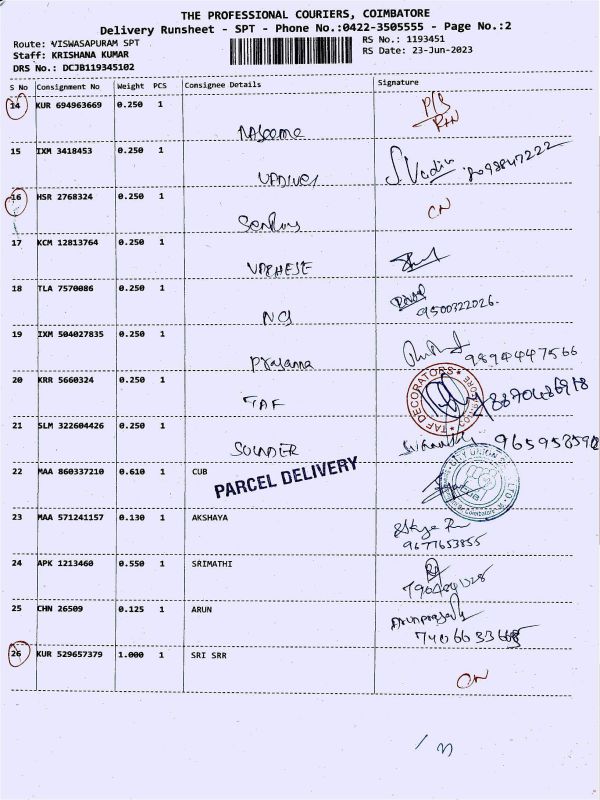 THE PROFESSIONAL COURIERS, COIMBATORE
Delivery Runsheet - SPT - Phone No.:0422-3505555 - Page No.:2
Route: VISWASAPURAM SPT
RS No.: 1193451
Staff: KRISHANA KUMAR
RS Date: 23-Jun-2023
DRS No.: DCJB119345102
S No Consignment No Weight PCS Consignee Details Signature
14 KUR 694963669 0.250 1
15 IXM 3418453 0.250 1
16 HSR 2768324 0.250 1 CN
17 KCM 12813764 0.250 1
VARHESE
18 TLA 7570086 0.250 1
9500322026.
19 IXM 504027835 0.250 1
Prasanna
9894447566
20 KRR 5660324 0.250 1
TAF
TAF DECORATORS
21 SLM 322604426 0.250 1
SOUNDER
22 MAA 860337210 0.610 1 CUB
PARCEL DELIVERY
23 MAA 571241157 0.130 1 AKSHAYA
9677653855
24 APK 1213460 0.550 1 SRIMATHI
25 CHN 26509 0.125 1 ARUN
26 KUR 529657379 1.000 1 SRI SRR
CN